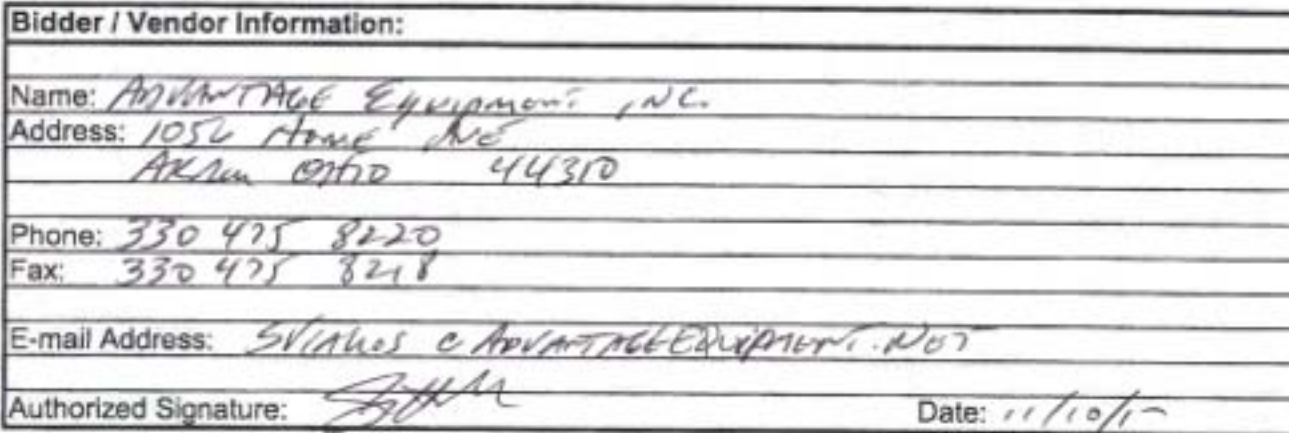 Bidder / Vendor Information:
Name: ADVANTAGE Equipment INC.
Address: 1056 Home AVE
Akron OHIO 44310
Phone: 330 475 8220
Fax: 330 475 8218
E-mail Address: @ ADVANTAGEEQUIPMENT.NET
Authorized Signature:
Date: 11/10/